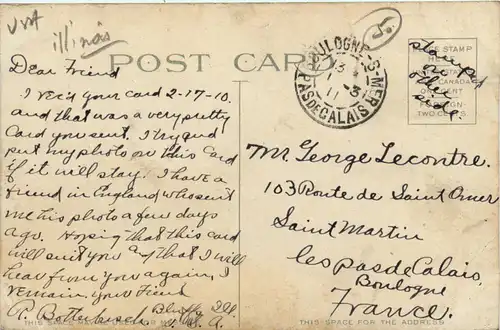 illinois
POST CARD
BOULOGNE-S-MER
13
1 - 3
11
PAS DE CALAIS
stamped
on
other
side.
Dear Friend
I rec'd your card 2-17-10.
and that was a very pretty
Card you sent. I try and
put my photo on this Card
if it will stay. I have a
friend in England who sent
me his photo a few days
ago. Hoping that this card
will suit you & that I will
hear from you again, I
remain, your Friend
Bluffs Ill.
U.S.A.
Mr. George Lecontre.
103 Route de Saint Omer
Saint Martin
les pas de Calais,
Boulogne
France.
THIS SPACE FOR THE ADDRESS